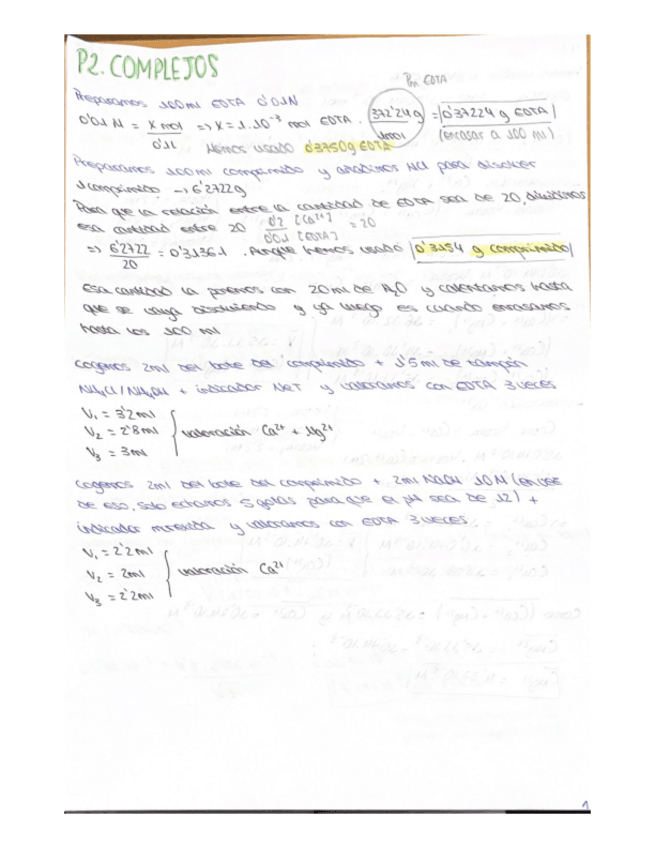 P2. COMPLEJOS
Pm EDTA
Preparamos 100 ml EDTA 0'01N
0'01 N = x mol / 0'1L => x = 1·10⁻³ mol EDTA · 372'24g / 1mol = 0'37224 g EDTA
(enrasar a 100 ml)
Hemos usado 0'3750g EDTA
Preparamos 100ml comprimido y añadimos HCl para disolver
1 comprimido -> 6'2722g
Para que la relación entre la cantidad de EDTA sea de 20 dividimos
esa cantidad entre 20 0'2 [Ca²⁺] / 0'01 [EDTA] = 20
=> 6'2722 / 20 = 0'31361. Aunque hemos usado 0'3154 g comprimido
Esa cantidad la ponemos con 20 ml de H₂O y calentamos hasta
que se vaya disolviendo y ya luego es cuando enrasamos
hasta los 100 ml
Cogemos 2ml del bote del comprimido + 1'5 ml de tampón
NH₄Cl/NH₄OH + indicador NET y valoramos con EDTA 3 veces
V₁ = 3'2 ml
V₂ = 2'8 ml
V₃ = 3 ml
valoración Ca²⁺ + Mg²⁺
Cogemos 2ml del bote del comprimido + 2ml NaOH 10N (en vez
de eso, solo echamos 5 gotas para que el pH sea de 12) +
indicador murexida y valoramos con EDTA 3 veces.
V₁ = 2'2 ml
V₂ = 2ml
V₃ = 2'2 ml
valoración Ca²⁺
1